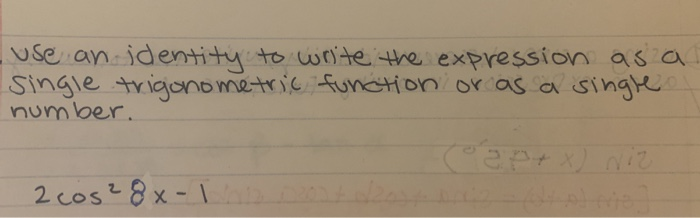 use an identity to write the expression as a
single trigonometric function or as a single
number.
2cos²8x-1